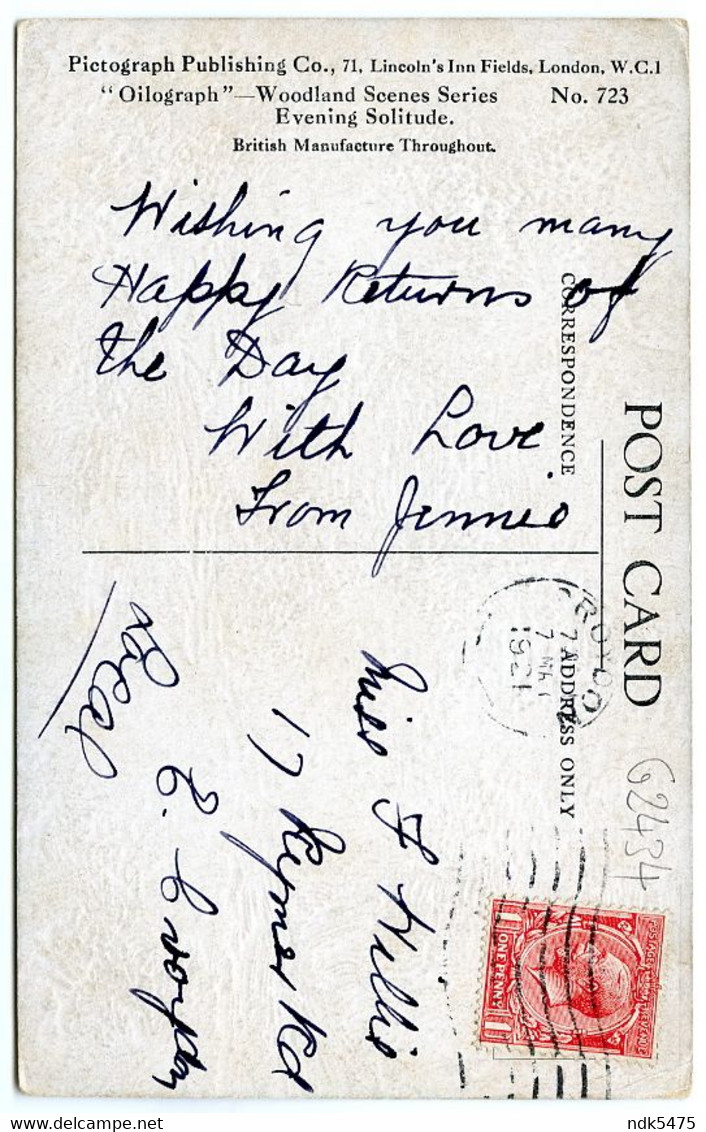 Pictograph Publishing Co., 71, Lincoln's Inn Fields, London, W.C.1
"Oilograph"—Woodland Scenes Series No. 723
Evening Solitude.
British Manufacture Throughout.
Wishing you many
Happy Returns of
the Day
With Love
From Jennie
POST CARD
CORRESPONDENCE
ADDRESS ONLY
CROYDON
7 MAY
1921
Miss F Willis
17 Rd
E. Croydon
Local
G2434
POSTAGE REVENUE
ONE PENNY
1 1
ndk5475